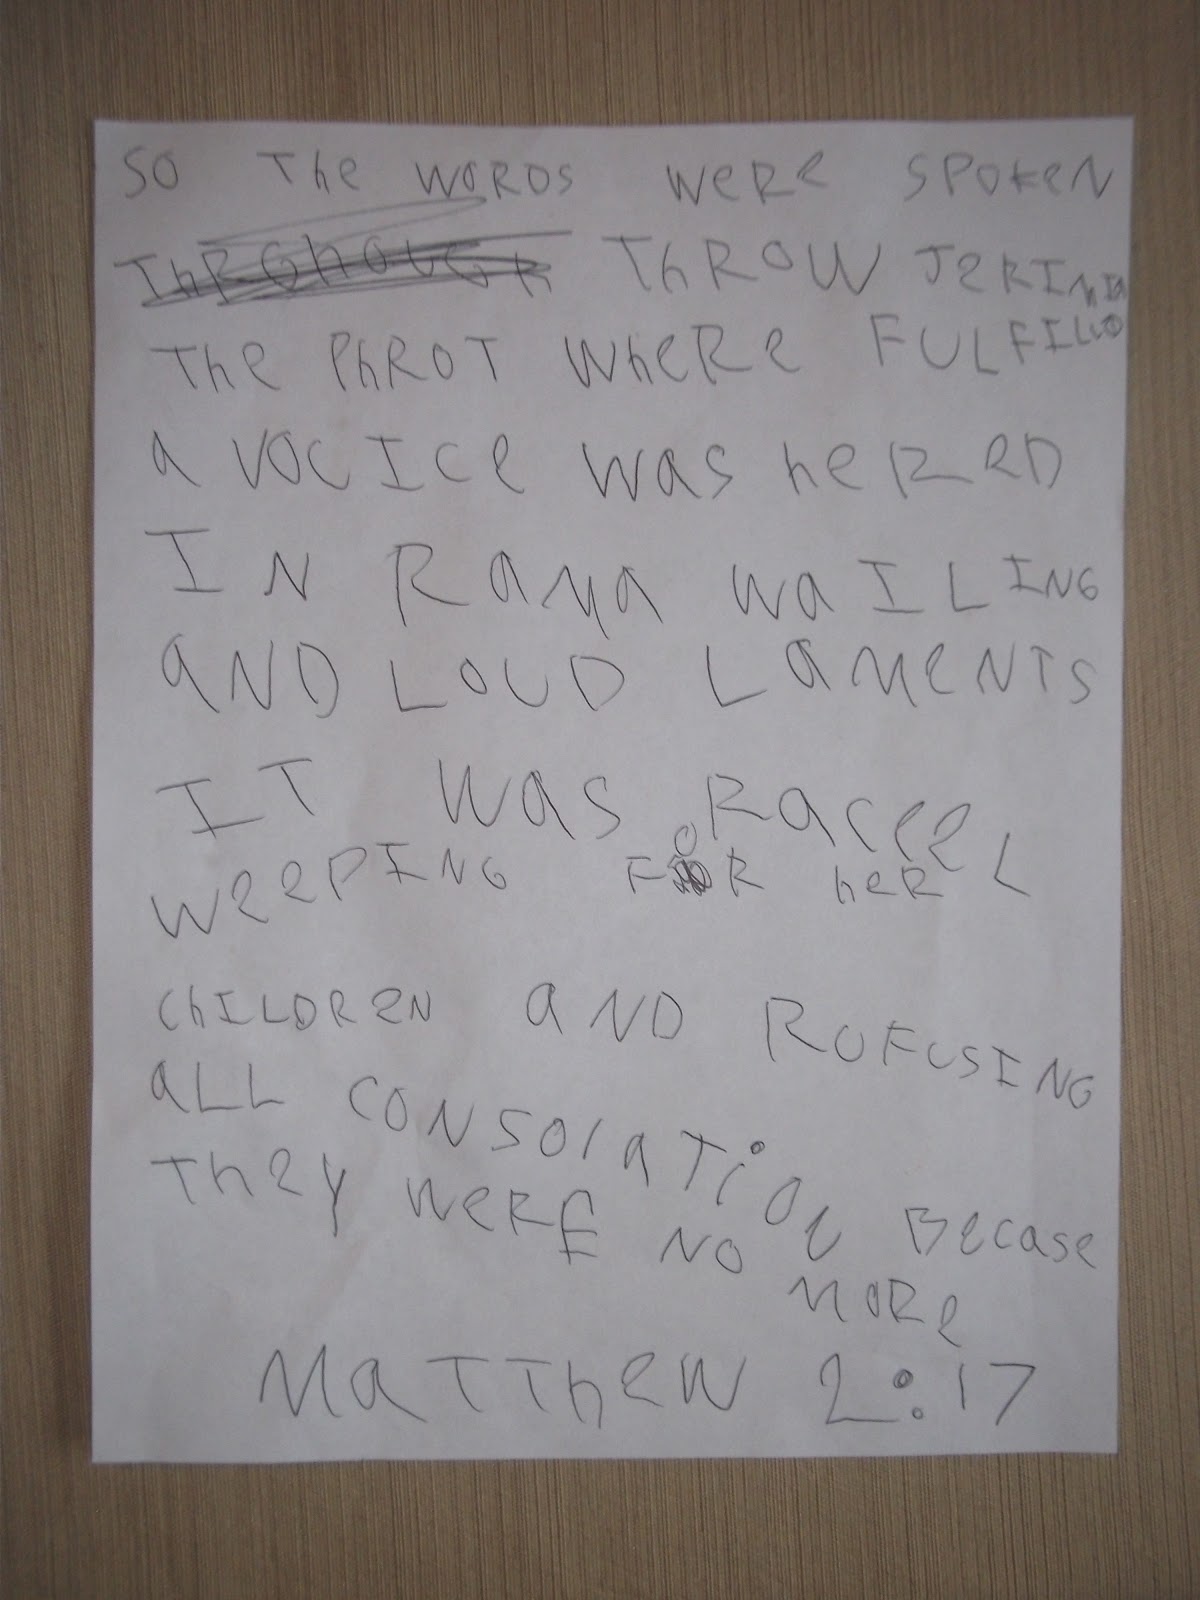 SO The WORDS WeRe SPOKeN
ThROW JeRIMIA
The PhROT WheRe FULFILLD
a VOCICe Was heRED
IN Rama WaILING
aND LOUD LameNTS
IT Was RaceeL
WeePING FOR heR
ChILDReN aND RUFUSING
aLL CONSOlaTiON Becase
TheY WeRE NO
MORe
MaTTheW 2:17